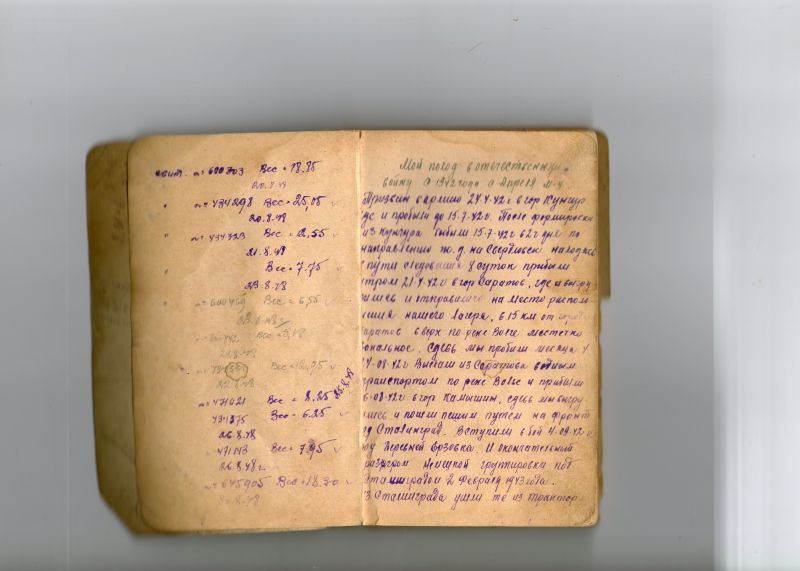 квит. № 600703 Вес = 18,85
20.8.48
" № 434298 Вес = 25,05
20.8.48
" № 434323 Вес = 2,55
21.8.48
Вес = 7.75
23.8.48
" Вес = 6,55
Вес = 5,18
Вес = 12,95
№ 471021 Вес = 8.85
Вес = 6.25
26.8.48
Вес = 7.95
26.8.48 г
№ 645905 Вес = 18.70
Мой поход в отечественную
войну с 1942 года с Апреля м-ц
Призван в армию 24.4.42 г в гор Кунгур
где и пробыл до 15.7.42 г. После формировки
из Кунгура выбыл 15.7.42 г
направлению ж.д. на Свердловск находясь
в пути следования 8 суток прибыли
утром 21.7.42 г в гор Саратов, где и выгру
зились и отправились на место располо-
жения нашего лагеря, в 15 км от города
Саратов вверх по реке Волге местечко
сдесь мы пробыли месяц
Выехали из Саратова водным
транспортом по реке Волге и прибыли
6-08-42 г в гор Камышин, сдесь мы выгру
зились и пошли пешим путем на фронт
под Сталинград. Вступили в бой 4.09.42 г
под деревней Ерзовка. И окончательный
разгром Немецкой группировки под
Сталинградом 2 Февраля 1943 года.
из Сталинграда ушли те из трактор-